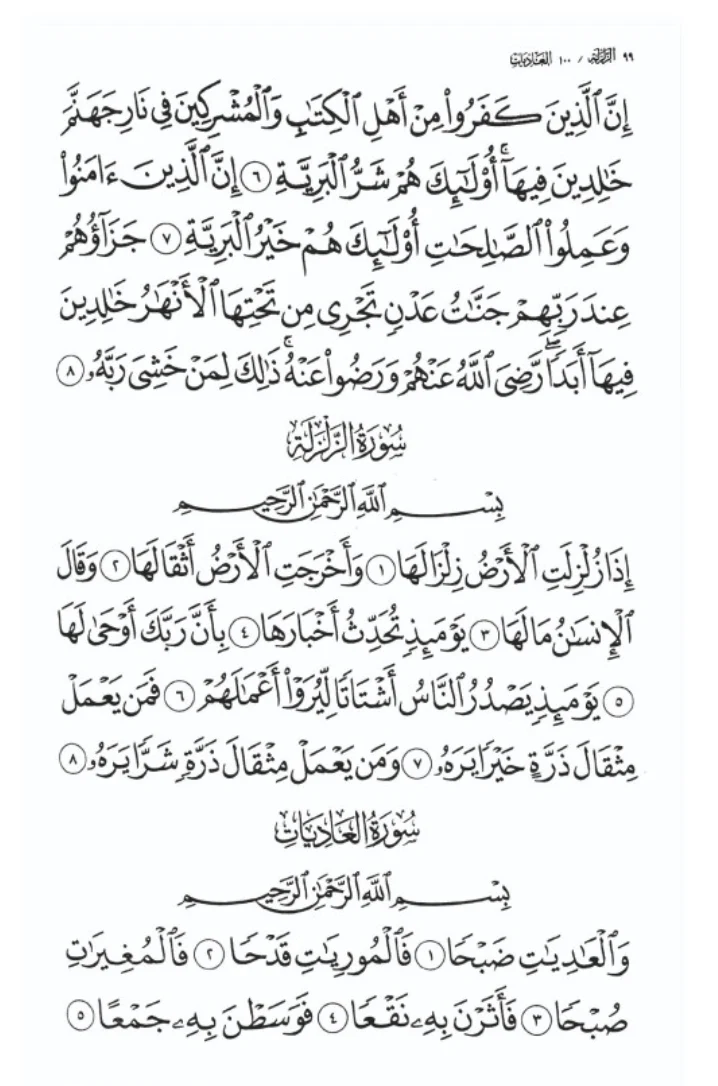 ٩٩ الزلزلة / ١٠٠ العاديات
إِنَّ ٱلَّذِينَ كَفَرُواْ مِنْ أَهْلِ ٱلْكِتَٰبِ وَٱلْمُشْرِكِينَ فِى نَارِ جَهَنَّمَ
خَٰلِدِينَ فِيهَآۚ أُوْلَٰٓئِكَ هُمْ شَرُّ ٱلْبَرِيَّةِ ٦ إِنَّ ٱلَّذِينَ ءَامَنُواْ
وَعَمِلُواْ ٱلصَّٰلِحَٰتِ أُوْلَٰٓئِكَ هُمْ خَيْرُ ٱلْبَرِيَّةِ ٧ جَزَآؤُهُمْ
عِندَ رَبِّهِمْ جَنَّٰتُ عَدْنٍ تَجْرِى مِن تَحْتِهَا ٱلْأَنْهَٰرُ خَٰلِدِينَ
فِيهَآ أَبَدًاۖ رَّضِىَ ٱللَّهُ عَنْهُمْ وَرَضُواْ عَنْهُۚ ذَٰلِكَ لِمَنْ خَشِىَ رَبَّهُۥ ٨
سُورَةُ الزَّلْزَلَةِ
بِسْمِ ٱللَّهِ ٱلرَّحْمَٰنِ ٱلرَّحِيمِ
إِذَا زُلْزِلَتِ ٱلْأَرْضُ زِلْزَالَهَا ١ وَأَخْرَجَتِ ٱلْأَرْضُ أَثْقَالَهَا ٢ وَقَالَ
ٱلْإِنسَٰنُ مَا لَهَا ٣ يَوْمَئِذٍ تُحَدِّثُ أَخْبَارَهَا ٤ بِأَنَّ رَبَّكَ أَوْحَىٰ لَهَا
٥ يَوْمَئِذٍ يَصْدُرُ ٱلنَّاسُ أَشْتَاتًا لِّيُرَوْاْ أَعْمَٰلَهُمْ ٦ فَمَن يَعْمَلْ
مِثْقَالَ ذَرَّةٍ خَيْرًا يَرَهُۥ ٧ وَمَن يَعْمَلْ مِثْقَالَ ذَرَّةٍ شَرًّا يَرَهُۥ ٨
سُورَةُ العَادِيَاتِ
بِسْمِ ٱللَّهِ ٱلرَّحْمَٰنِ ٱلرَّحِيمِ
وَٱلْعَٰدِيَٰتِ ضَبْحًا ١ فَٱلْمُورِيَٰتِ قَدْحًا ٢ فَٱلْمُغِيرَٰتِ
صُبْحًا ٣ فَأَثَرْنَ بِهِۦ نَقْعًا ٤ فَوَسَطْنَ بِهِۦ جَمْعًا ٥